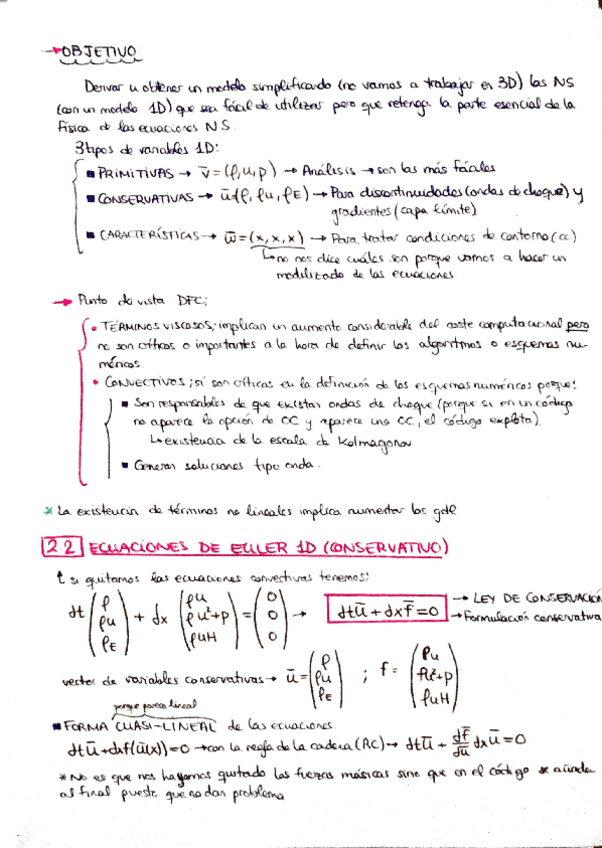 →OBJETIVO
Derivar u obtener un modelo simplificando (no vamos a trabajar en 3D) las NS
(con un modelo 1D) que sea fácil de utilizar pero que retenga la parte esencial de la
física de las ecuaciones NS.
3 tipos de variables 1D:
■ PRIMITIVAS → v̄ = (ρ, u, p) → Análisis → son las más fáciles
■ CONSERVATIVAS → ū(ρ, ρu, ρE) → Para discontinuidades (ondas de choque) y
gradientes (capa límite)
■ CARACTERÍSTICAS → w̄ = (x, x, x) → Para tratar condiciones de contorno (cc)
↳no nos dice cuáles son porque vamos a hacer un
modelizado de las ecuaciones
→ Punto de vista DFC:
• TÉRMINOS VISCOSOS; implican un aumento considerable del coste computacional pero
no son críticos o importantes a la hora de definir los algoritmos o esquemas nu-
méricos.
• CONVECTIVOS; sí son críticas en la definición de los esquemas numéricos porque:
■ Son responsables de que existan ondas de choque (porque si en un código
no aparece la opción de CC y aparece una CC, el código explota).
↳existencia de la escala de Kolmagorov
■ Generan soluciones tipo onda.
* La existencia de términos no lineales implica aumentar los gdl
2.2 ECUACIONES DE EULER 1D (CONSERVATIVO)
si quitamos las ecuaciones convectivas tenemos:
dt (ρ ρu ρE) + dx (ρu ρu²+p ρuH) = (0 0 0) → dtū + dx f̄ = 0 → LEY DE CONSERVACIÓN
→ Formulación conservativa
vector de variables conservativas → ū = (ρ ρu ρE) ; f = (ρu ρu²+p ρuH)
porque parece lineal
■ FORMA CUASI-LINEAL de las ecuaciones
dtū + dxf(ū(x)) = 0 → con la regla de la cadera (RC) → dtū + df̄/dū dxū = 0
* No es que nos hayamos quitado las fuerzas másicas sino que en el código se añaden
al final puesto que no dan problema